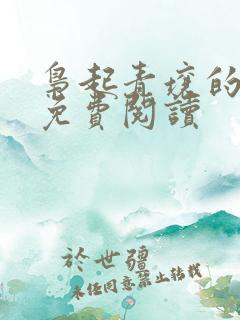 梟起青壤的
免費閱讀
於世疆
未經同意禁止轉載